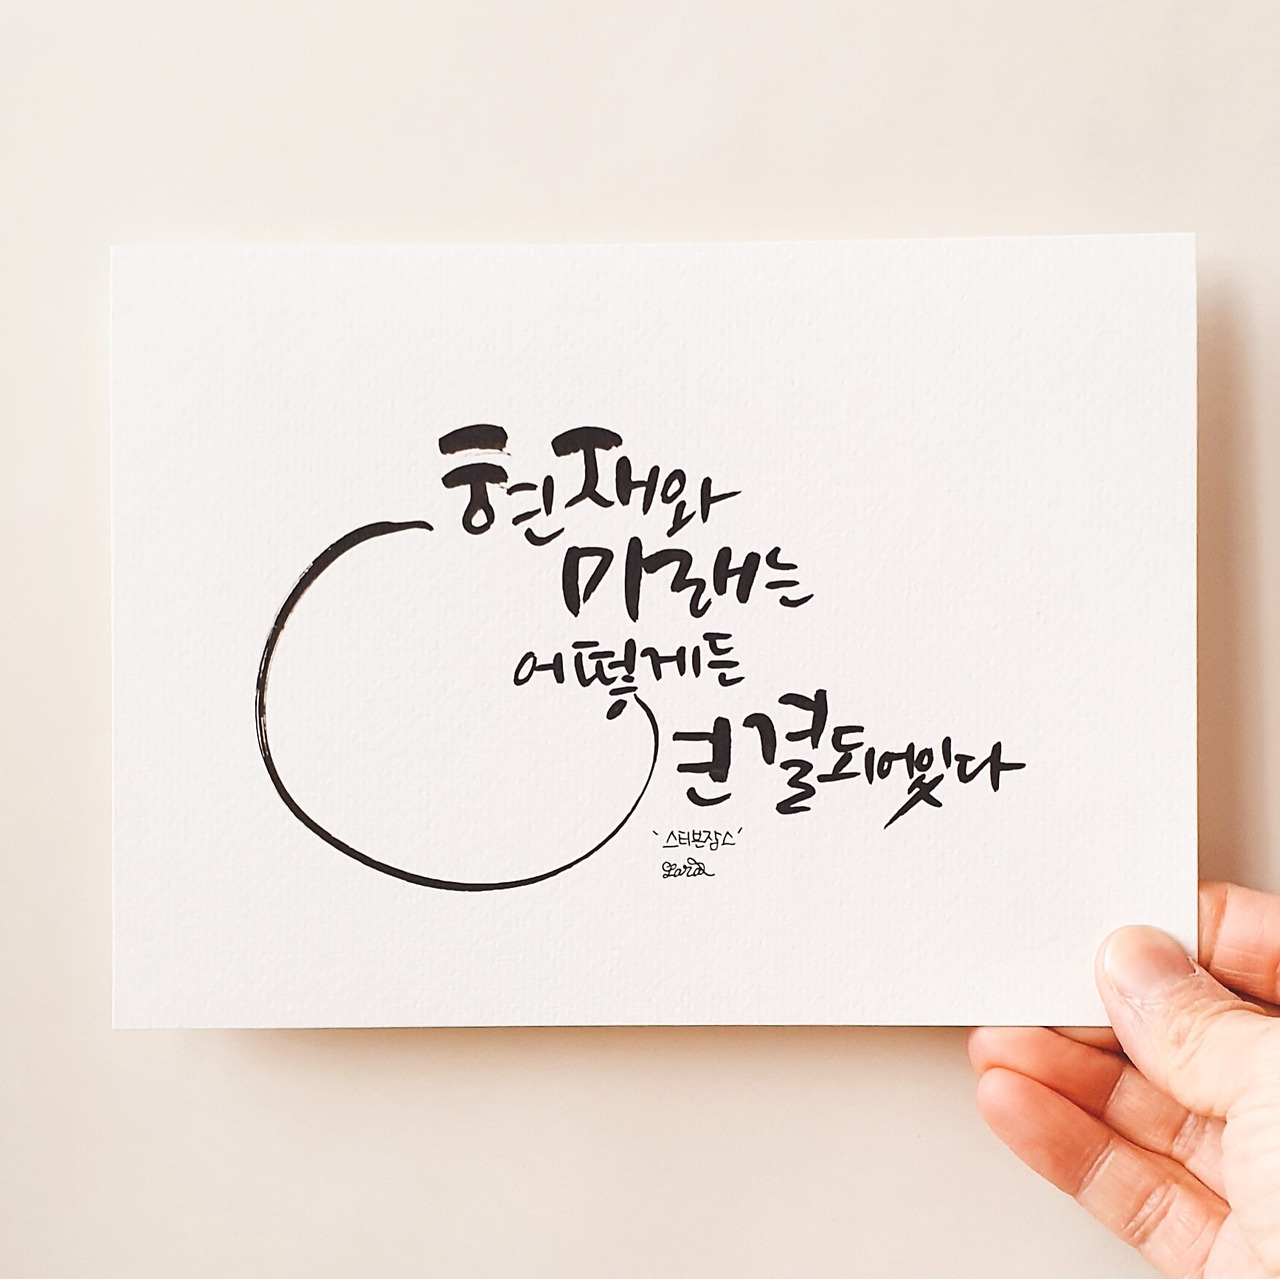 현재와
미래는
어떻게든
연결되어있다
'스티브잡스'